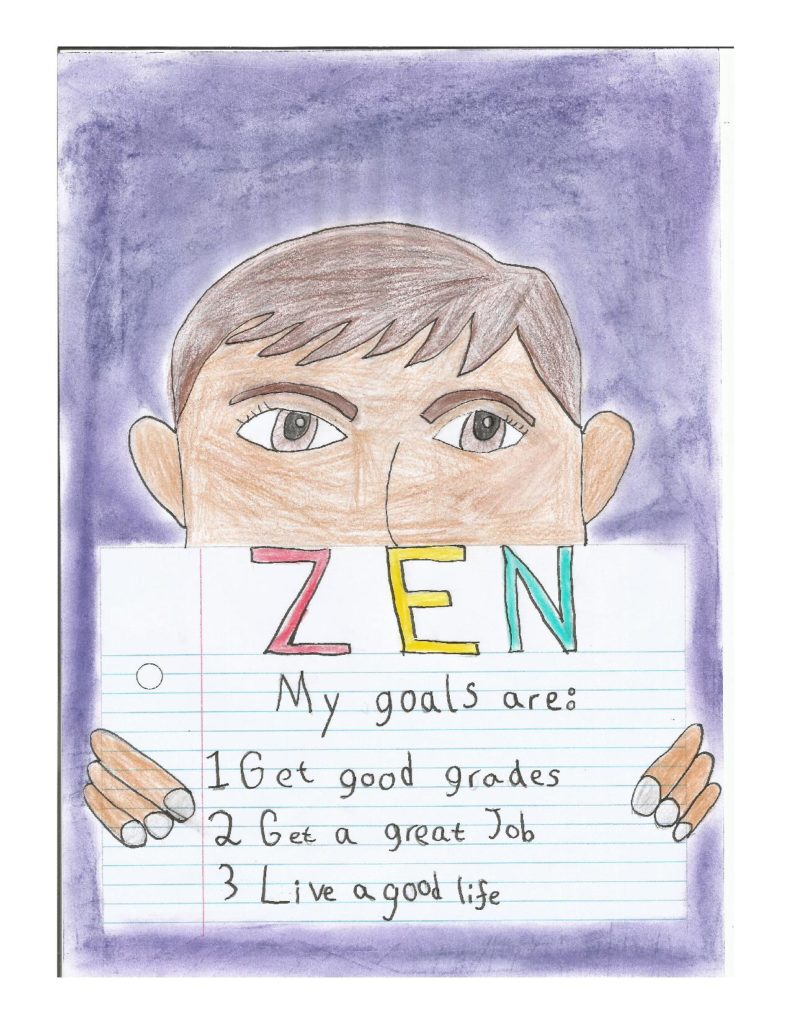 ZEN
My goals are:
1 Get good grades
2 Get a great Job
3 Live a good life